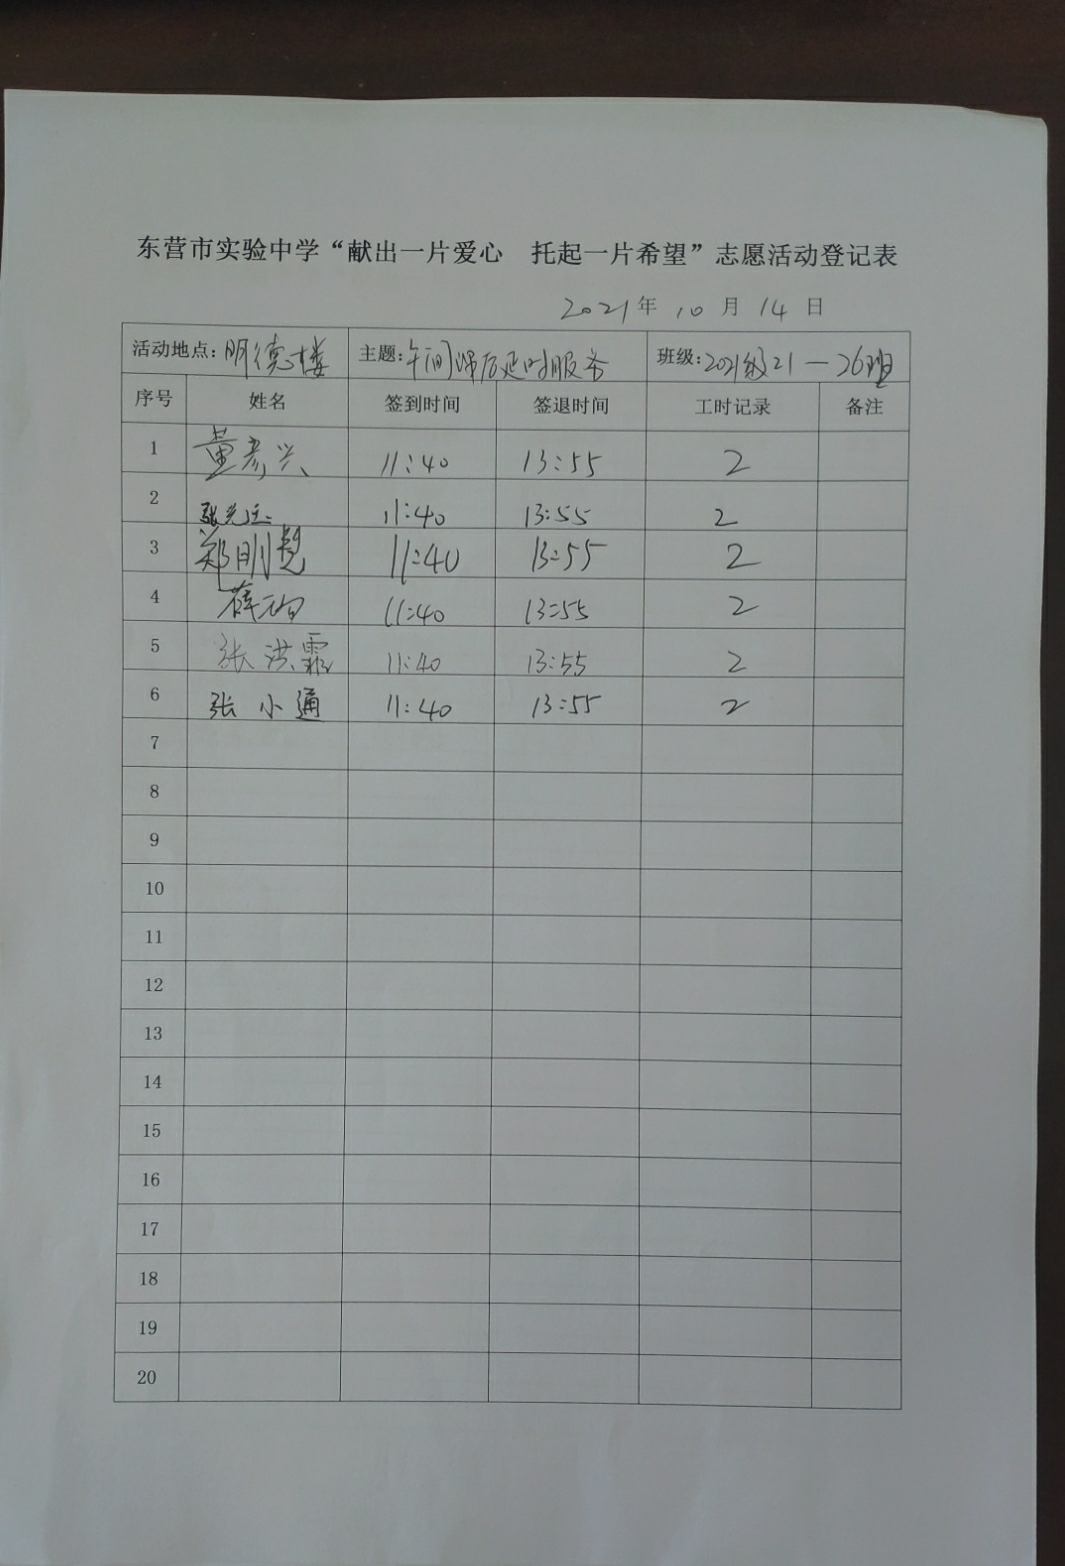 东营市实验中学“献出一片爱心 托起一片希望”志愿活动登记表
2021年 10 月 14 日
活动地点：明德楼 主题：午间课后延时服务 班级：2021级21—26班
序号 姓名 签到时间 签退时间 工时记录 备注
1 黄彦兴 11:40 13:55 2
2 张 11:40 13:55 2
3 郑刚 11:40 13:55 2
4 薛 11:40 13:55 2
5 张洪霞 11:40 13:55 2
6 张小通 11:40 13:55 2
7
8
9
10
11
12
13
14
15
16
17
18
19
20